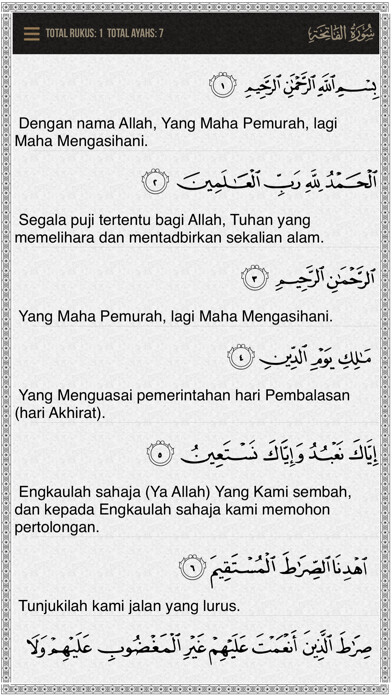 TOTAL RUKUS: 1 TOTAL AYAHS: 7 سُورَةُ الفَاتِحَةِ
بِسْمِ اللَّهِ الرَّحْمَٰنِ الرَّحِيمِ ١
Dengan nama Allah, Yang Maha Pemurah, lagi
Maha Mengasihani.
الْحَمْدُ لِلَّهِ رَبِّ الْعَالَمِينَ ٢
Segala puji tertentu bagi Allah, Tuhan yang
memelihara dan mentadbirkan sekalian alam.
الرَّحْمَٰنِ الرَّحِيمِ ٣
Yang Maha Pemurah, lagi Maha Mengasihani.
مَالِكِ يَوْمِ الدِّينِ ٤
Yang Menguasai pemerintahan hari Pembalasan
(hari Akhirat).
إِيَّاكَ نَعْبُدُ وَإِيَّاكَ نَسْتَعِينُ ٥
Engkaulah sahaja (Ya Allah) Yang Kami sembah,
dan kepada Engkaulah sahaja kami memohon
pertolongan.
اهْدِنَا الصِّرَاطَ الْمُسْتَقِيمَ ٦
Tunjukilah kami jalan yang lurus.
صِرَاطَ الَّذِينَ أَنْعَمْتَ عَلَيْهِمْ غَيْرِ الْمَغْضُوبِ عَلَيْهِمْ وَلَا